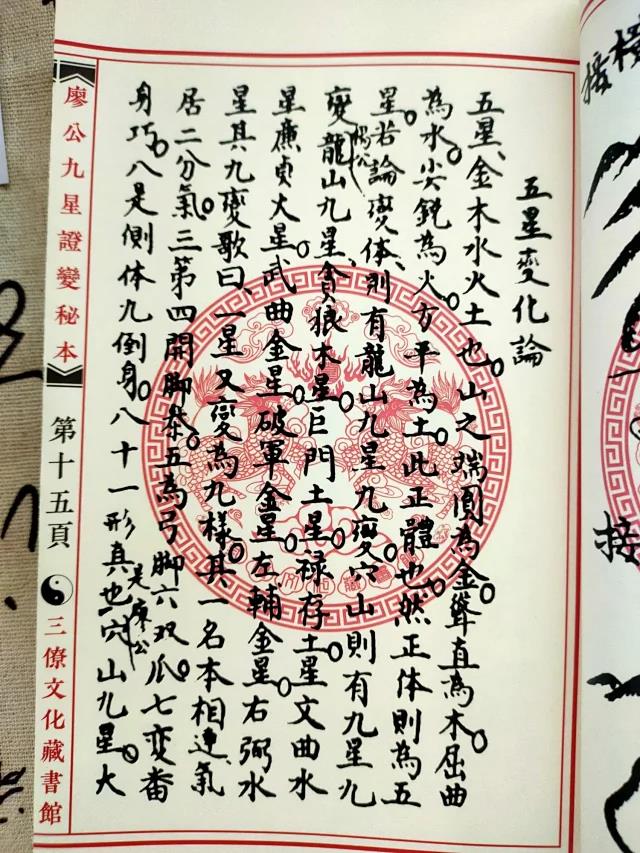 接
接
五星變化論
五星、金木水火土也。山之端圓為金。聳直為木。屈曲
為水。尖鋭為火。方平為土。此正體也。然正体則為五
星。若論變体、則有龍山九星九變。穴山則有九星九
楊公
變。龍山九星、貪狼木星。巨門土星。禄存土星。文曲水
星。廉貞火星。武曲金星。破軍金星。左輔金星。右弼水
星。其九變歌曰、一星又變為九樣。其一名本相連、氣
居二分氣。三第四開脚叅五為弓脚六双爪。七变番
身巧。八是側体九倒身。八十一形真也。穴山九星。大
是廖公
廖公九星證變秘本
第十五頁
三僚文化藏書館